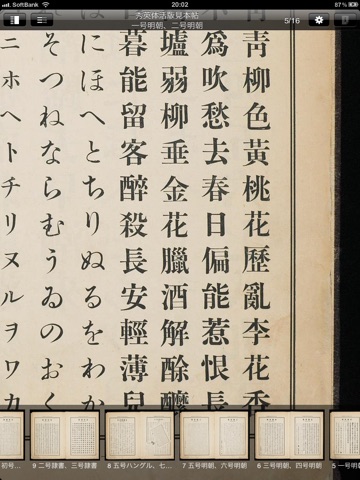 SoftBank 20:02 87%
秀英体活版見本帖
一号明朝、二号明朝
5/16
靑柳色黃桃花歷亂李花香
爲吹愁去春日偏能惹恨長
壚弱柳垂金花臘酒解酴醾
暮能留客醉殺長安輕薄兒
にほへとちりぬるをわか
そつねならむうゐのおく
ニホヘトチリヌルヲワカ
初号...
9 二号隷書、三号隷書
8 五号ハングル、七...
7 五号明朝、六号明朝
6 三号明朝、四号明朝
5 一号明朝